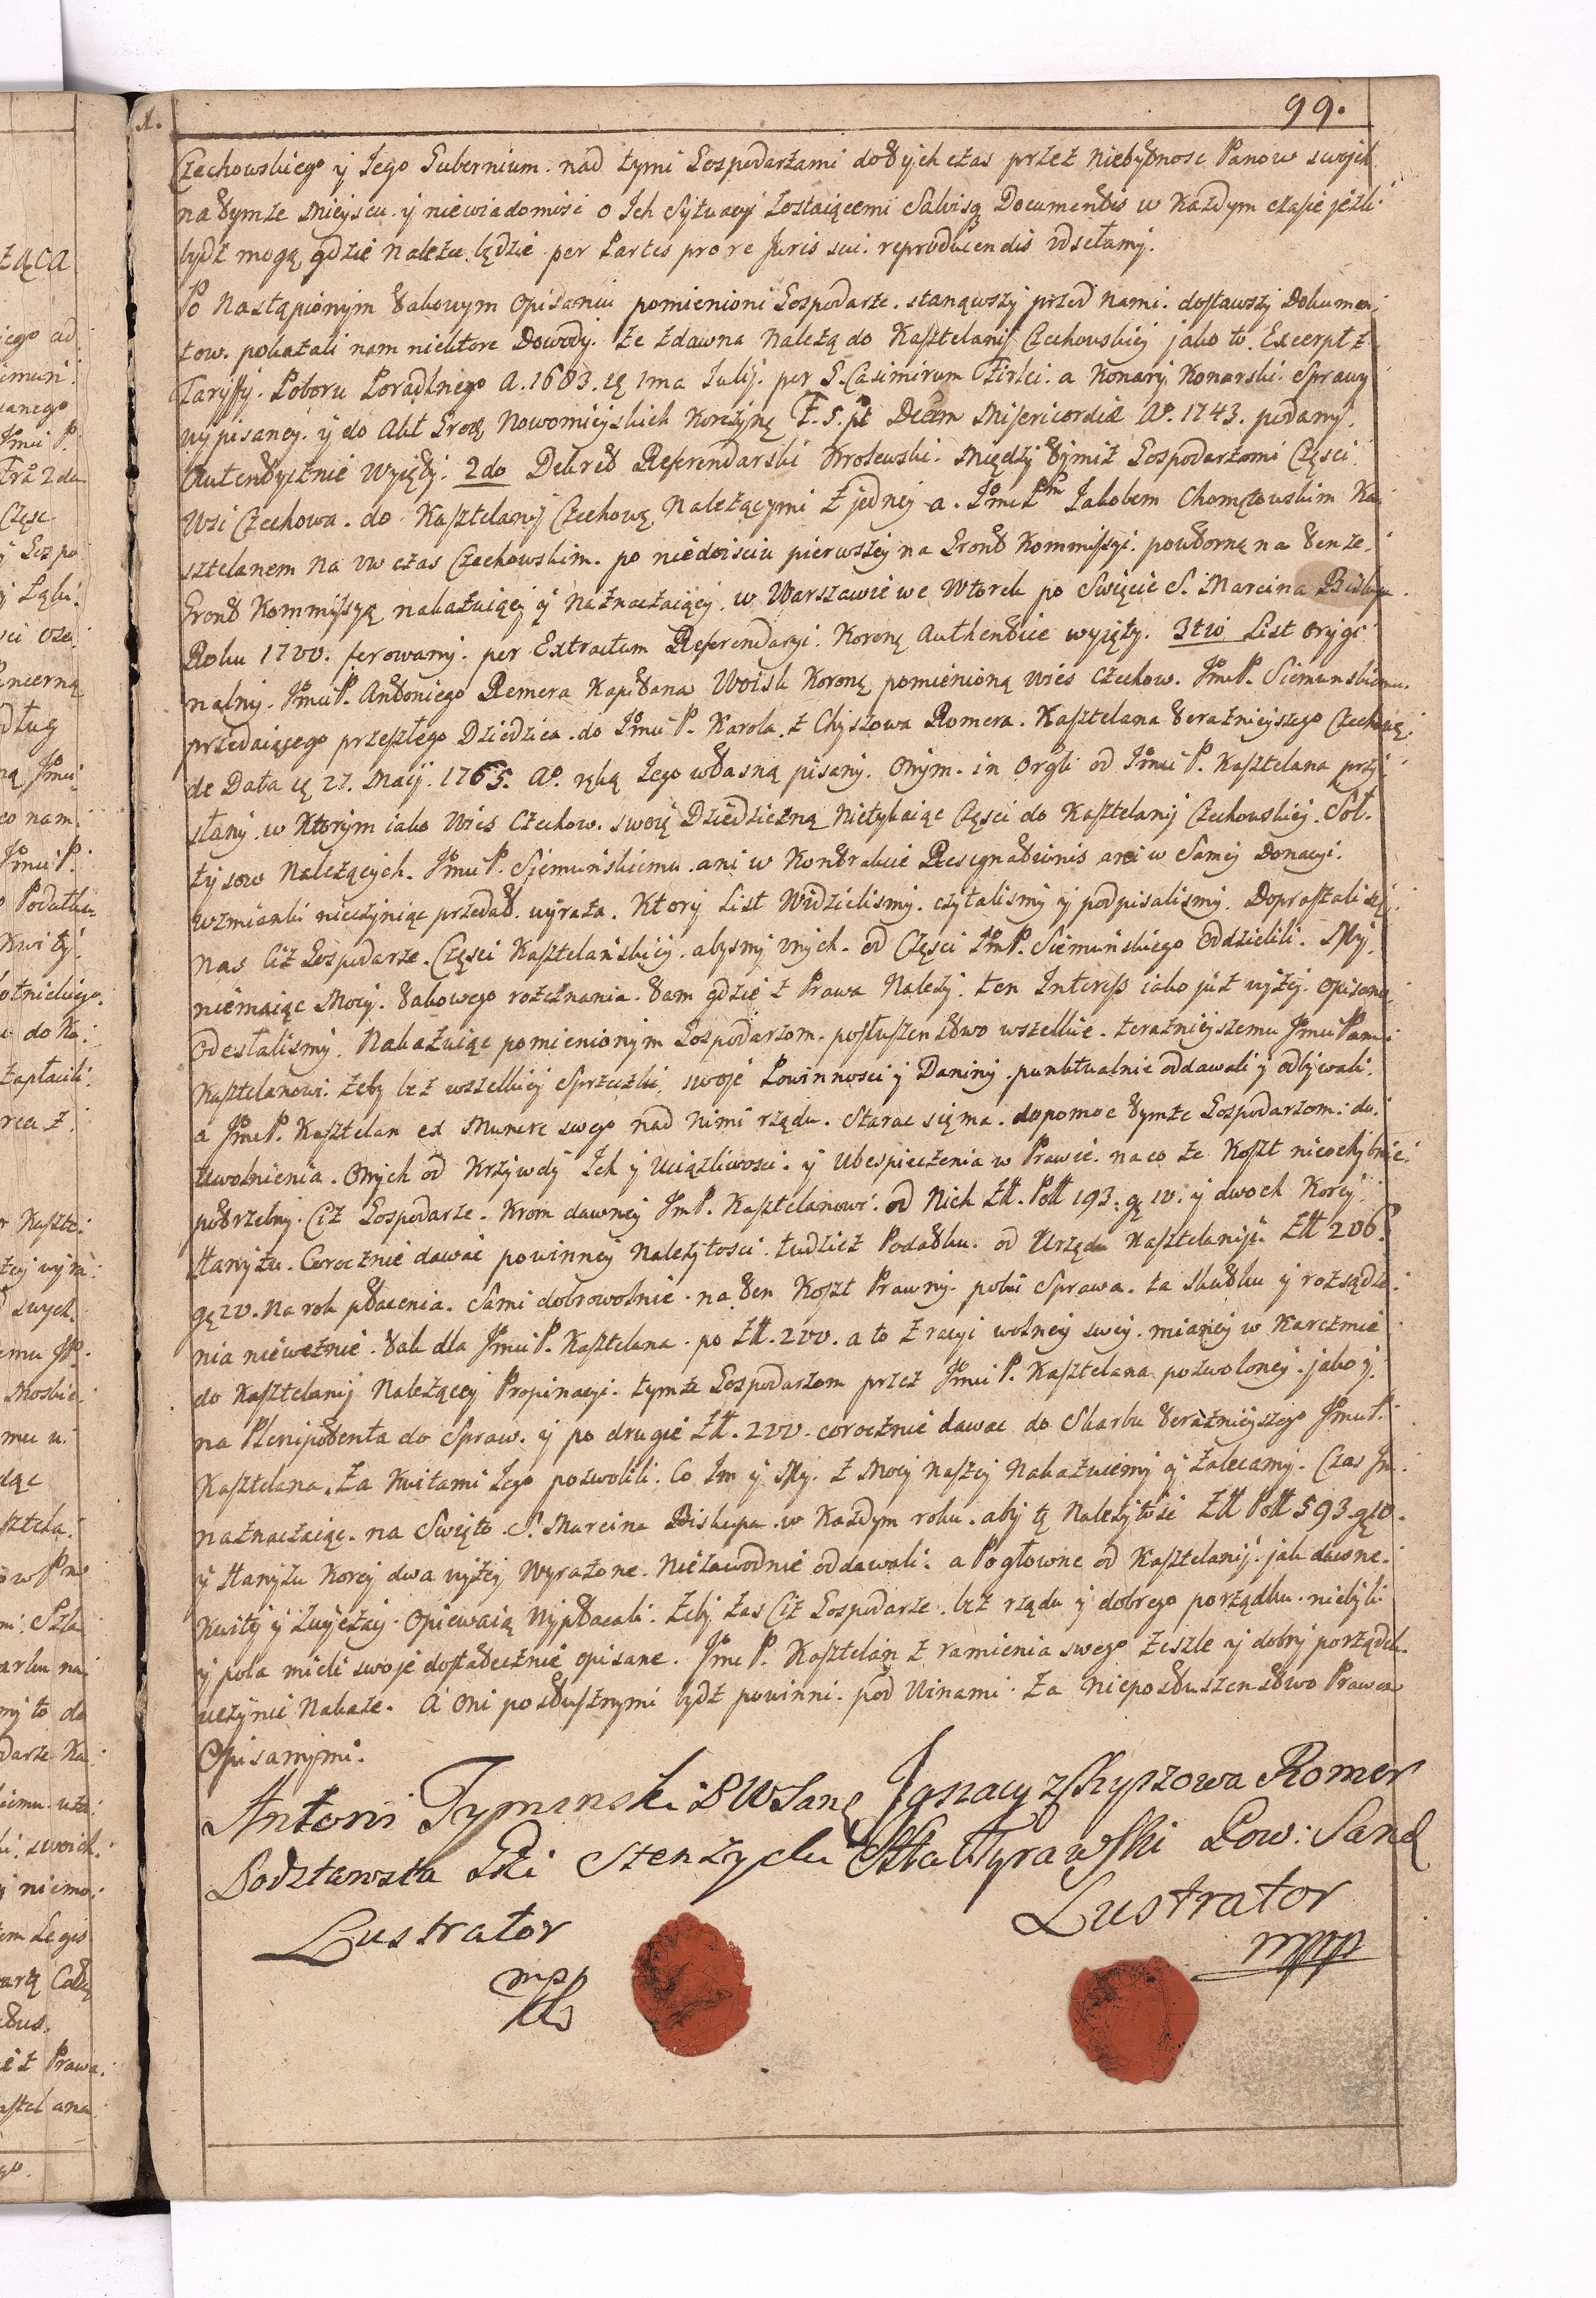 99.
Czechowskiego y Jego Gubernium nad tymi Gospodarzami dotychczas przez niebytnosc Panow swojch
na tymże Mieyscu y niewiadomosc o Jch Sytuacyi zostaiącemi Salvisą Documentis w Każdym czasie jeźli
bydź mogą gdzie należeć będzie per Partes pro re Juris sui reproducendis odsełamy.
Po Nastąpionym takowym Opisaniu pomienioni Gospodarze stanąwszy przed nami dostawszy Dokumen
tow. pokazali nam niektore Dowody. że zdawna Należą do Kasztelanij Czechowskiey jako to Excerpt z
Taryffy Poboru Poradlnego A. 1683. 1ma Julij per G. Casimirum Firlei a Konary Konarski Sprawy
wypisaney. y do Akt Grodz Nowomieyskich Korczynę F. 5. pt Dcam Misericordiæ Ao. 1743. podany.
Autentycznie Wyięty. 2do Dekret Referendarski Krolewski. Między tymiż Gospodarzami Częsci
Wsi Czechowa do Kasztelanij Czechowę Należącymi z jedney a. Jmć Pm Jakobem Chomętowskim Ka
sztelanem na ow czas Czechowskim. po niedoisciu pierwszey na Gront Kommissyi. powtorną na tenże
Gront Kommissyą nakazuiący y Naznaczaiący w Warszawie we Wtorek po Swięcie S. Marcina Biskupa
Roku 1700. ferowany. per Extractum Referendaryi Koronę Authentice wyięty. 3tio List Orygi
nalny. Jmci P. Antoniego Remera Kapitana Woisk Koronę pomienioną Wies Czechow. Jmci P. Siemunskiemu
przedaiącego przeszłego Dziedzica do Jmci P. Karola z Chyszowa Romera. Kasztelana teraznieyszego Czechowę
de Data 27. Maij. 1765. Ao. ręką Jego własną pisany. Onym. in Orgli od Jmci P. Kasztelana przy
słany w Ktorym iako Wies Czechow. swoię Dziedziczną Nietykaiąc Częsci do Kasztelanij Czechowskiey. Soł
tysow Należących. Jmci P. Siemuńskiemu ani w Kontrakcie Resignationis ani w Samey Donacyi.
wzmianki nieczyniąc przedał wyraża. Ktory List Widzielismy czytalismy y podpisalismy. Dopraszali się
nas Ciż Gospodarze. Częsci Kasztelańskiey abysmy onych od Częsci Jm P. Siemuńskiego Oddzielili. My
niemaiąc Mocy. takowego rozeznania. tam gdzie z Prawa Należy. ten Interess iako już wyżey opisano
Odesłalismy. Nakazuiąc pomienionym Gospodarzom posłuszeństwo wszelkie teraznieyszemu Jmci Panu
Kasztelanowi. żeby bez wszelkiey Sprzeczki swoje Powinnosci y Daniny punktualnie oddawali y odbywali.
a Jmć P. Kasztelan ex Munere swego nad nimi rządu. Starac się ma dopomoc tymże Gospodarzom do
Uwolnienia. Onych od Krzywdy Jch y Uciążliwosci. y Ubespieczenia w Prawie. na co że Koszt nieochybnie
potrzebny. Ciż Gospodarze. Krom dawney Jm P. Kasztelanowi od Nich Złł. Poll 193. gę 10. y dwoch Korcy
Hanyżu. Corocznie dawać powinney Należytosci tudzież Podatku od Urzędu Kasztelanij Złł 206.
gę 20. na rok płacenia. Sami dobrowolnie na ten Koszt Prawny poki Sprawa. ta Skutku y rozsądze
nia nieweznie tak dla Jmci P. Kasztelana po Złł. 200. a to z racyi wolney swey mianey w Karczmie
do Kasztelanij Należącey Propinacyi. tymże Gospodarzom przez Jmci P. Kasztelana pozwoloney. jako y
na Plenipotenta do Spraw. y po drugie Złł. 200. corocznie dawac do Skarbu teraznieyszego Jmci P.
Kasztelana. Za Kwitami Jego pozwolili. Co Jm y My z Mocy Naszey Nakazuiemy y Zalecamy. Czas Jm
naznaczaiąc. na Swięto S. Marcina Biskupa w Każdym roku. aby tę Należytosc Złł Poll 593. gę 10.
y Hanyżu Korcy dwa wyżey Wyrażone. Niezawodnie oddawali. a Pogłowne od Kasztelanij. jak dawne
Kwity y Zwyczay Opiewaią Wypłacali. Żeby zas Ciż Gospodarze bez rządu y dobrego porządku niebyli
y pola mieli swoje dostatecznie opisane. Jmć P. Kasztelan z ramienia swego zeszle y dobry porządek
uczynić Nakaze. A Oni posłusznymi bydź powinni pod Winami za nieposłuszenstwo Prawem
Opisanymi.
Antoni Tyminski P W Sandę Ignacy z Chyszowa Romer
Podstarosta Gdi Stenzycki Stta Tyrawski Łow: Sand
Lustrator
Lustrator
mpp
mpp